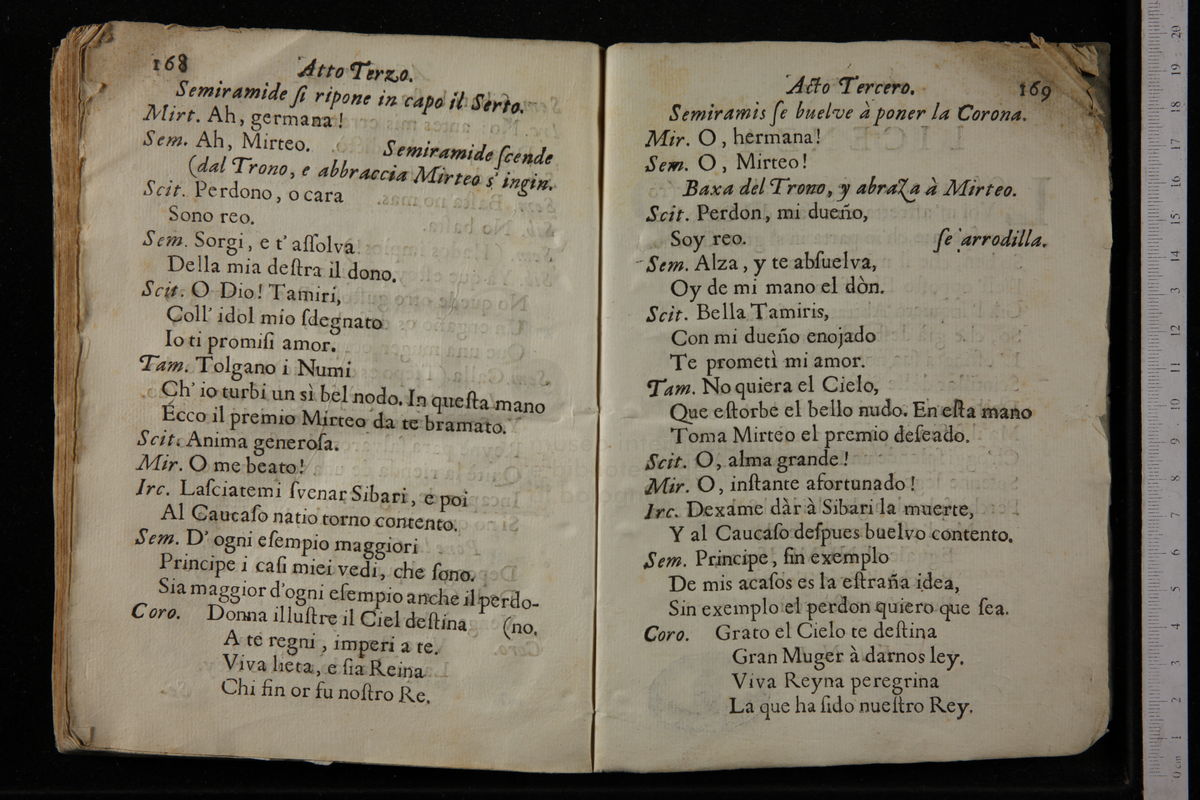 168 Atto Terzo.
Semiramide ſi ripone in capo il Serto.
Mirt. Ah, germana!
Sem. Ah, Mirteo. Semiramide ſcende
(dal Trono, e abbraccia Mirteo s' ingin.
Scit. Perdono, o cara
Sono reo.
Sem. Sorgi, e t' aſſolva
Della mia deſtra il dono.
Scit. O Dio! Tamiri,
Coll' idol mio ſdegnato
Io ti promiſi amor.
Tam. Tolgano i Numi
Ch' io turbi un sì bel nodo. In queſta mano
Ecco il premio Mirteo da te bramato.
Scit. Anima generoſa.
Mir. O me beato!
Irc. Laſciatemi ſvenar Sibari, e poi
Al Caucaſo natio torno contento.
Sem. D' ogni eſempio maggiori
Principe i caſi miei vedi, che ſono.
Sia maggior d'ogni eſempio anche il perdo-
Coro. Donna illuſtre il Ciel deſtina (no.
A te regni, imperi a te.
Viva lieta, e ſia Reina
Chi fin or fu noſtro Re.
Acto Tercero. 169
Semiramis ſe buelve à poner la Corona.
Mir. O, hermana!
Sem. O, Mirteo!
Baxa del Trono, y abraza à Mirteo.
Scit. Perdon, mi dueño,
Soy reo. ſe arrodilla.
Sem. Alza, y te abſuelva,
Oy de mi mano el dòn.
Scit. Bella Tamiris,
Con mi dueño enojado
Te prometì mi amor.
Tam. No quiera el Cielo,
Que eſtorbe el bello nudo. En eſta mano
Toma Mirteo el premio deſeado.
Scit. O, alma grande!
Mir. O, inſtante afortunado!
Irc. Dexame dàr à Sibari la muerte,
Y al Caucaſo deſpues buelvo contento.
Sem. Principe, ſin exemplo
De mis acaſos es la eſtraña idea,
Sin exemplo el perdon quiero que ſea.
Coro. Grato el Cielo te deſtina
Gran Muger à darnos ley.
Viva Reyna peregrina
La que ha ſido nueſtro Rey.